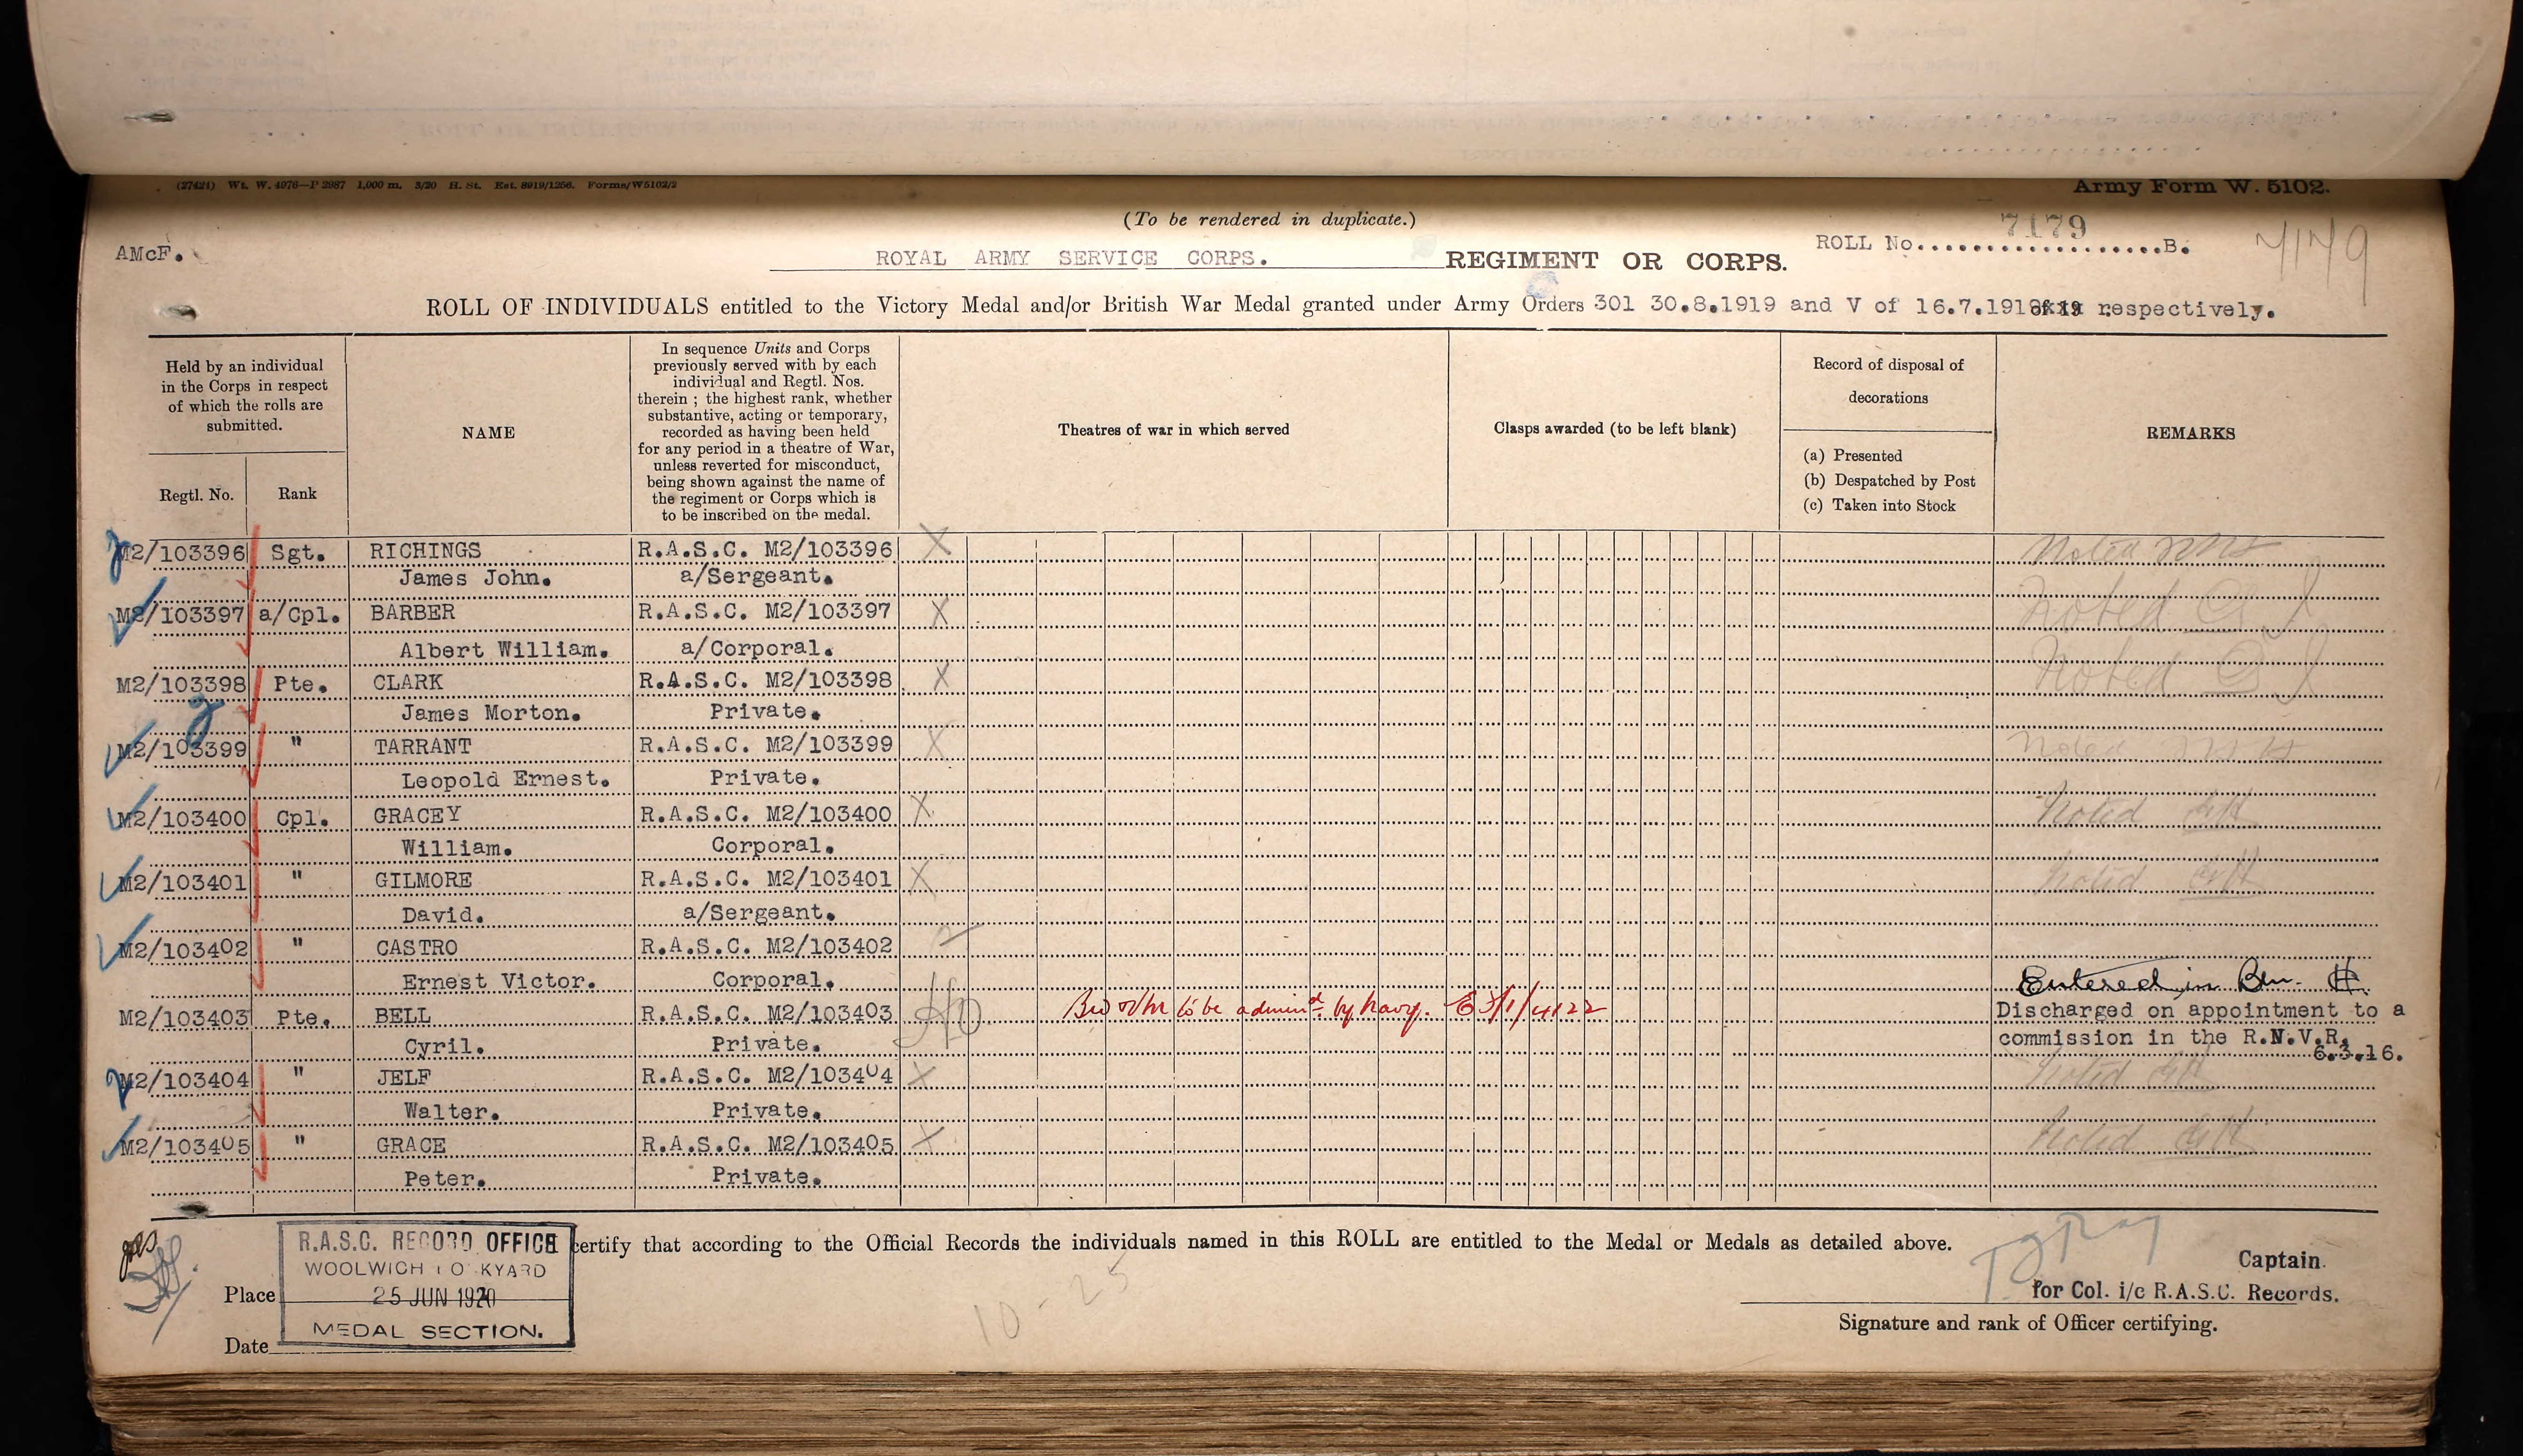 (27421) Wt. W. 4976—P 2987 1,000 m. 3/20 H. St. Est. 8919/1256. Forms/W5102/2
Army Form W. 5102.
(To be rendered in duplicate.)
AMcF.
ROYAL ARMY SERVICE CORPS. REGIMENT OR CORPS.
ROLL No. 7179 B.
7179
ROLL OF INDIVIDUALS entitled to the Victory Medal and/or British War Medal granted under Army Orders 301 30.8.1919 and V of 16.7.1919 respectively.
Held by an individual
in the Corps in respect
of which the rolls are
submitted.
Regtl. No.
Rank
NAME
In sequence Units and Corps
previously served with by each
individual and Regtl. Nos.
therein ; the highest rank, whether
substantive, acting or temporary,
recorded as having been held
for any period in a theatre of War,
unless reverted for misconduct,
being shown against the name of
the regiment or Corps which is
to be inscribed on the medal.
Theatres of war in which served
Clasps awarded (to be left blank)
Record of disposal of
decorations
(a) Presented
(b) Despatched by Post
(c) Taken into Stock
REMARKS
M2/103396 Sgt. RICHINGS R.A.S.C. M2/103396 X Noted
James John. a/Sergeant.
M2/103397 a/Cpl. BARBER R.A.S.C. M2/103397 X Noted
Albert William. a/Corporal.
M2/103398 Pte. CLARK R.A.S.C. M2/103398 X Noted
James Morton. Private.
M2/103399 " TARRANT R.A.S.C. M2/103399 X Noted
Leopold Ernest. Private.
M2/103400 Cpl. GRACEY R.A.S.C. M2/103400 X Noted
William. Corporal.
M2/103401 " GILMORE R.A.S.C. M2/103401 X Noted
David. a/Sergeant.
M2/103402 " CASTRO R.A.S.C. M2/103402
Ernest Victor. Corporal. Entered in
M2/103403 Pte. BELL R.A.S.C. M2/103403 to be admind by Navy. Discharged on appointment to a
Cyril. Private. commission in the R.N.V.R.
6.3.16.
M2/103404 " JELF R.A.S.C. M2/103404 X Noted
Walter. Private.
M2/103405 " GRACE R.A.S.C. M2/103405 X Noted
Peter. Private.
certify that according to the Official Records the individuals named in this ROLL are entitled to the Medal or Medals as detailed above.
R.A.S.C. RECORD OFFICE
WOOLWICH DOCKYARD
25 JUN 1920
MEDAL SECTION.
Place
Date
10-25
Captain.
for Col. i/c R.A.S.C. Records.
Signature and rank of Officer certifying.